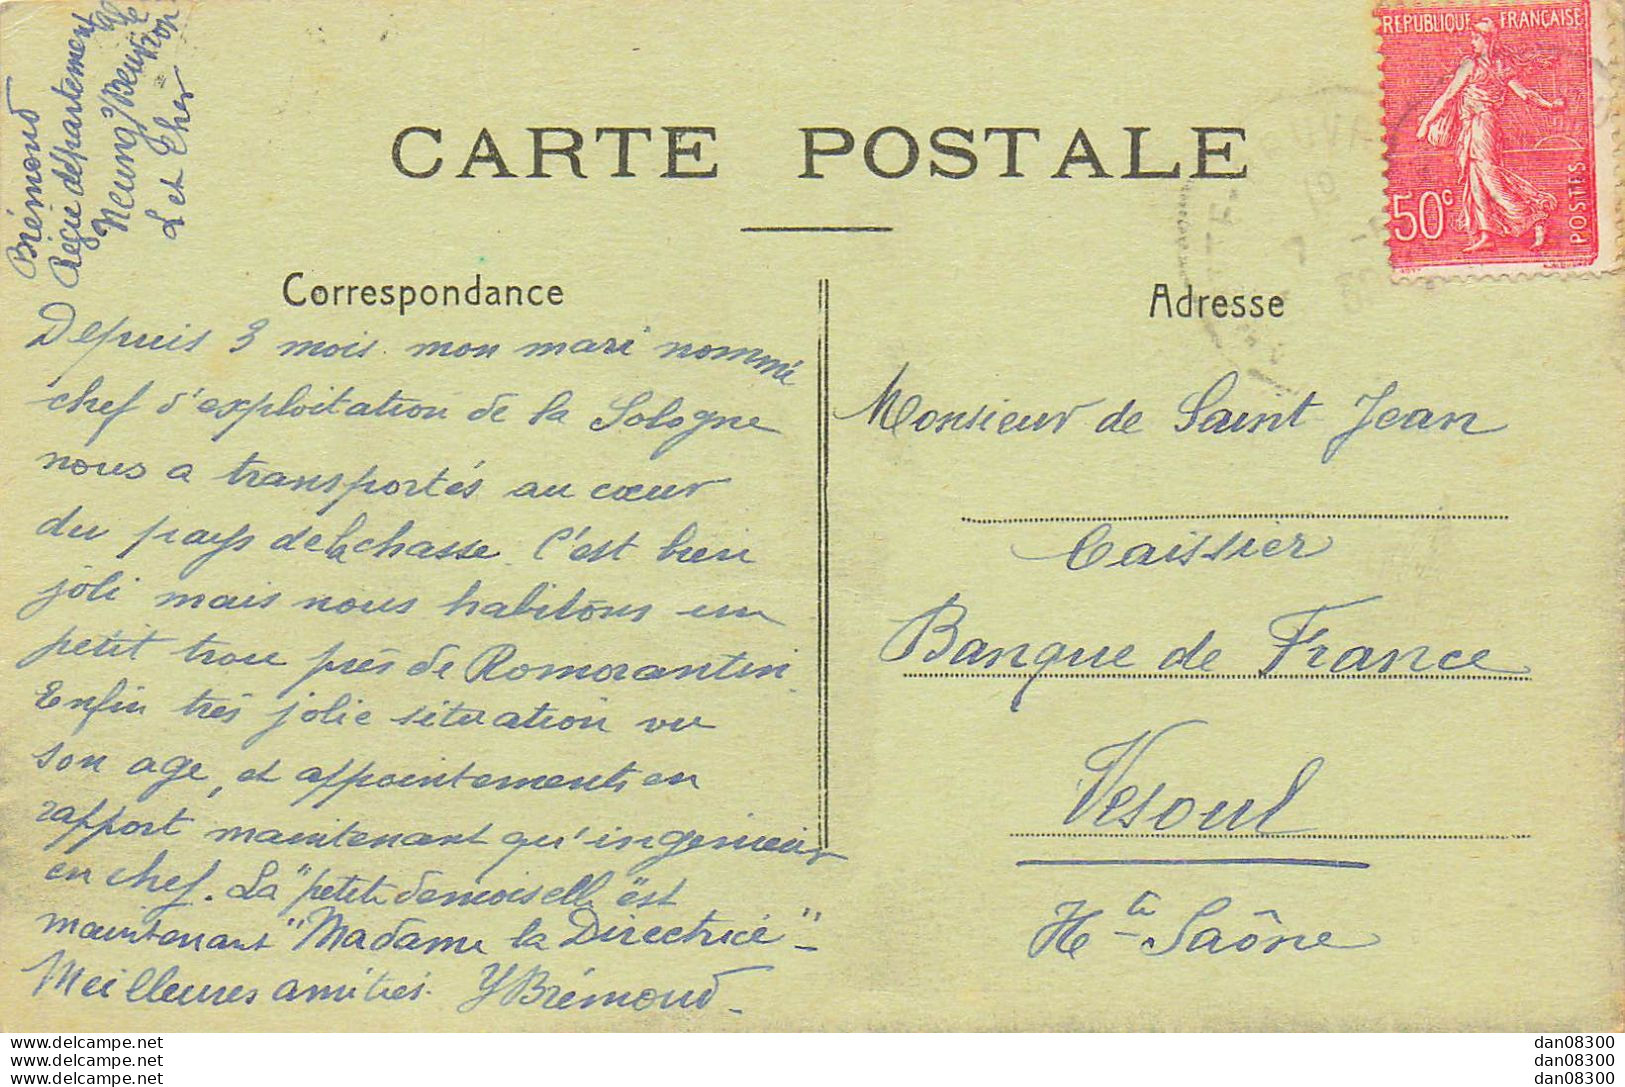 Brémond
Régie départementale
Neung s/ Beuvron
L et Cher
REPUBLIQUE FRANÇAISE
50c
POSTES
CARTE POSTALE
Correspondance
Adresse
Depuis 3 mois mon mari nommé
chef d'exploitation de la Sologne
nous a transportés au cœur
du pays de la chasse. C'est bien
joli mais nous habitons un
petit trou près de Romorantin.
Enfin très jolie situation vu
son age, et appointements en
rapport maintenant qu'ingénieur
en chef. La "petite demoiselle" est
maintenant "Madame la Directrice" -
Meilleures amitiés. YBrémond -
Monsieur de Saint Jean
Caissier
Banque de France
Vesoul
Hte Saône
dan08300
dan08300
dan08300
dan08300
dan08300
dan08300